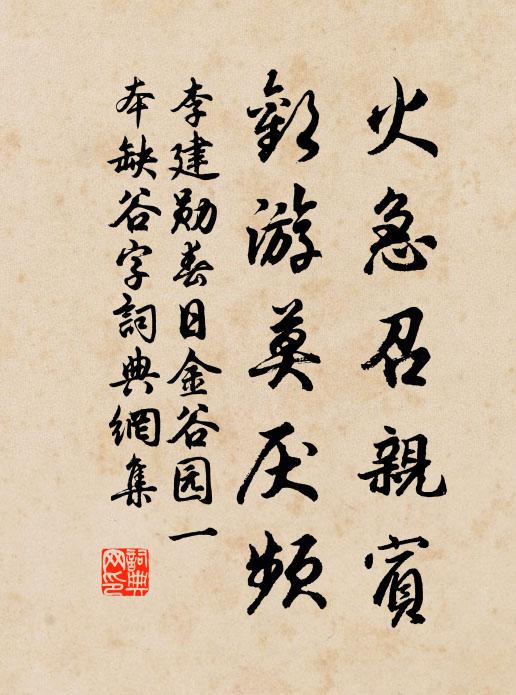 火急召親賓
歡游莫厌頻
李建勋春日金谷园一
本缺谷字詞典網集
詞典网印